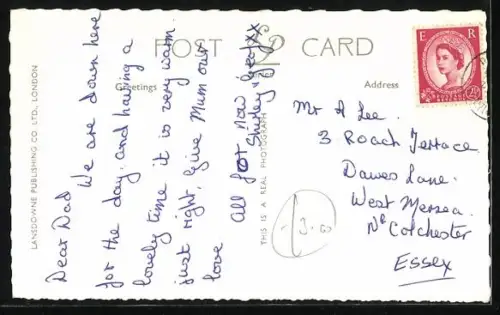 POST CARD
Greetings
Address
LANSDOWNE PUBLISHING CO. LTD., LONDON
THIS IS A REAL PHOTOGRAPH
Dear Dad We are down here
for the day, and having a
lovely time it is very warm
just right, give Mum our
love
All for now
Shirley
xx
E R
Mr A Lee.
3 Roach Terrace
Dawes Lane.
West Mersea.
Nr Colchester
Essex